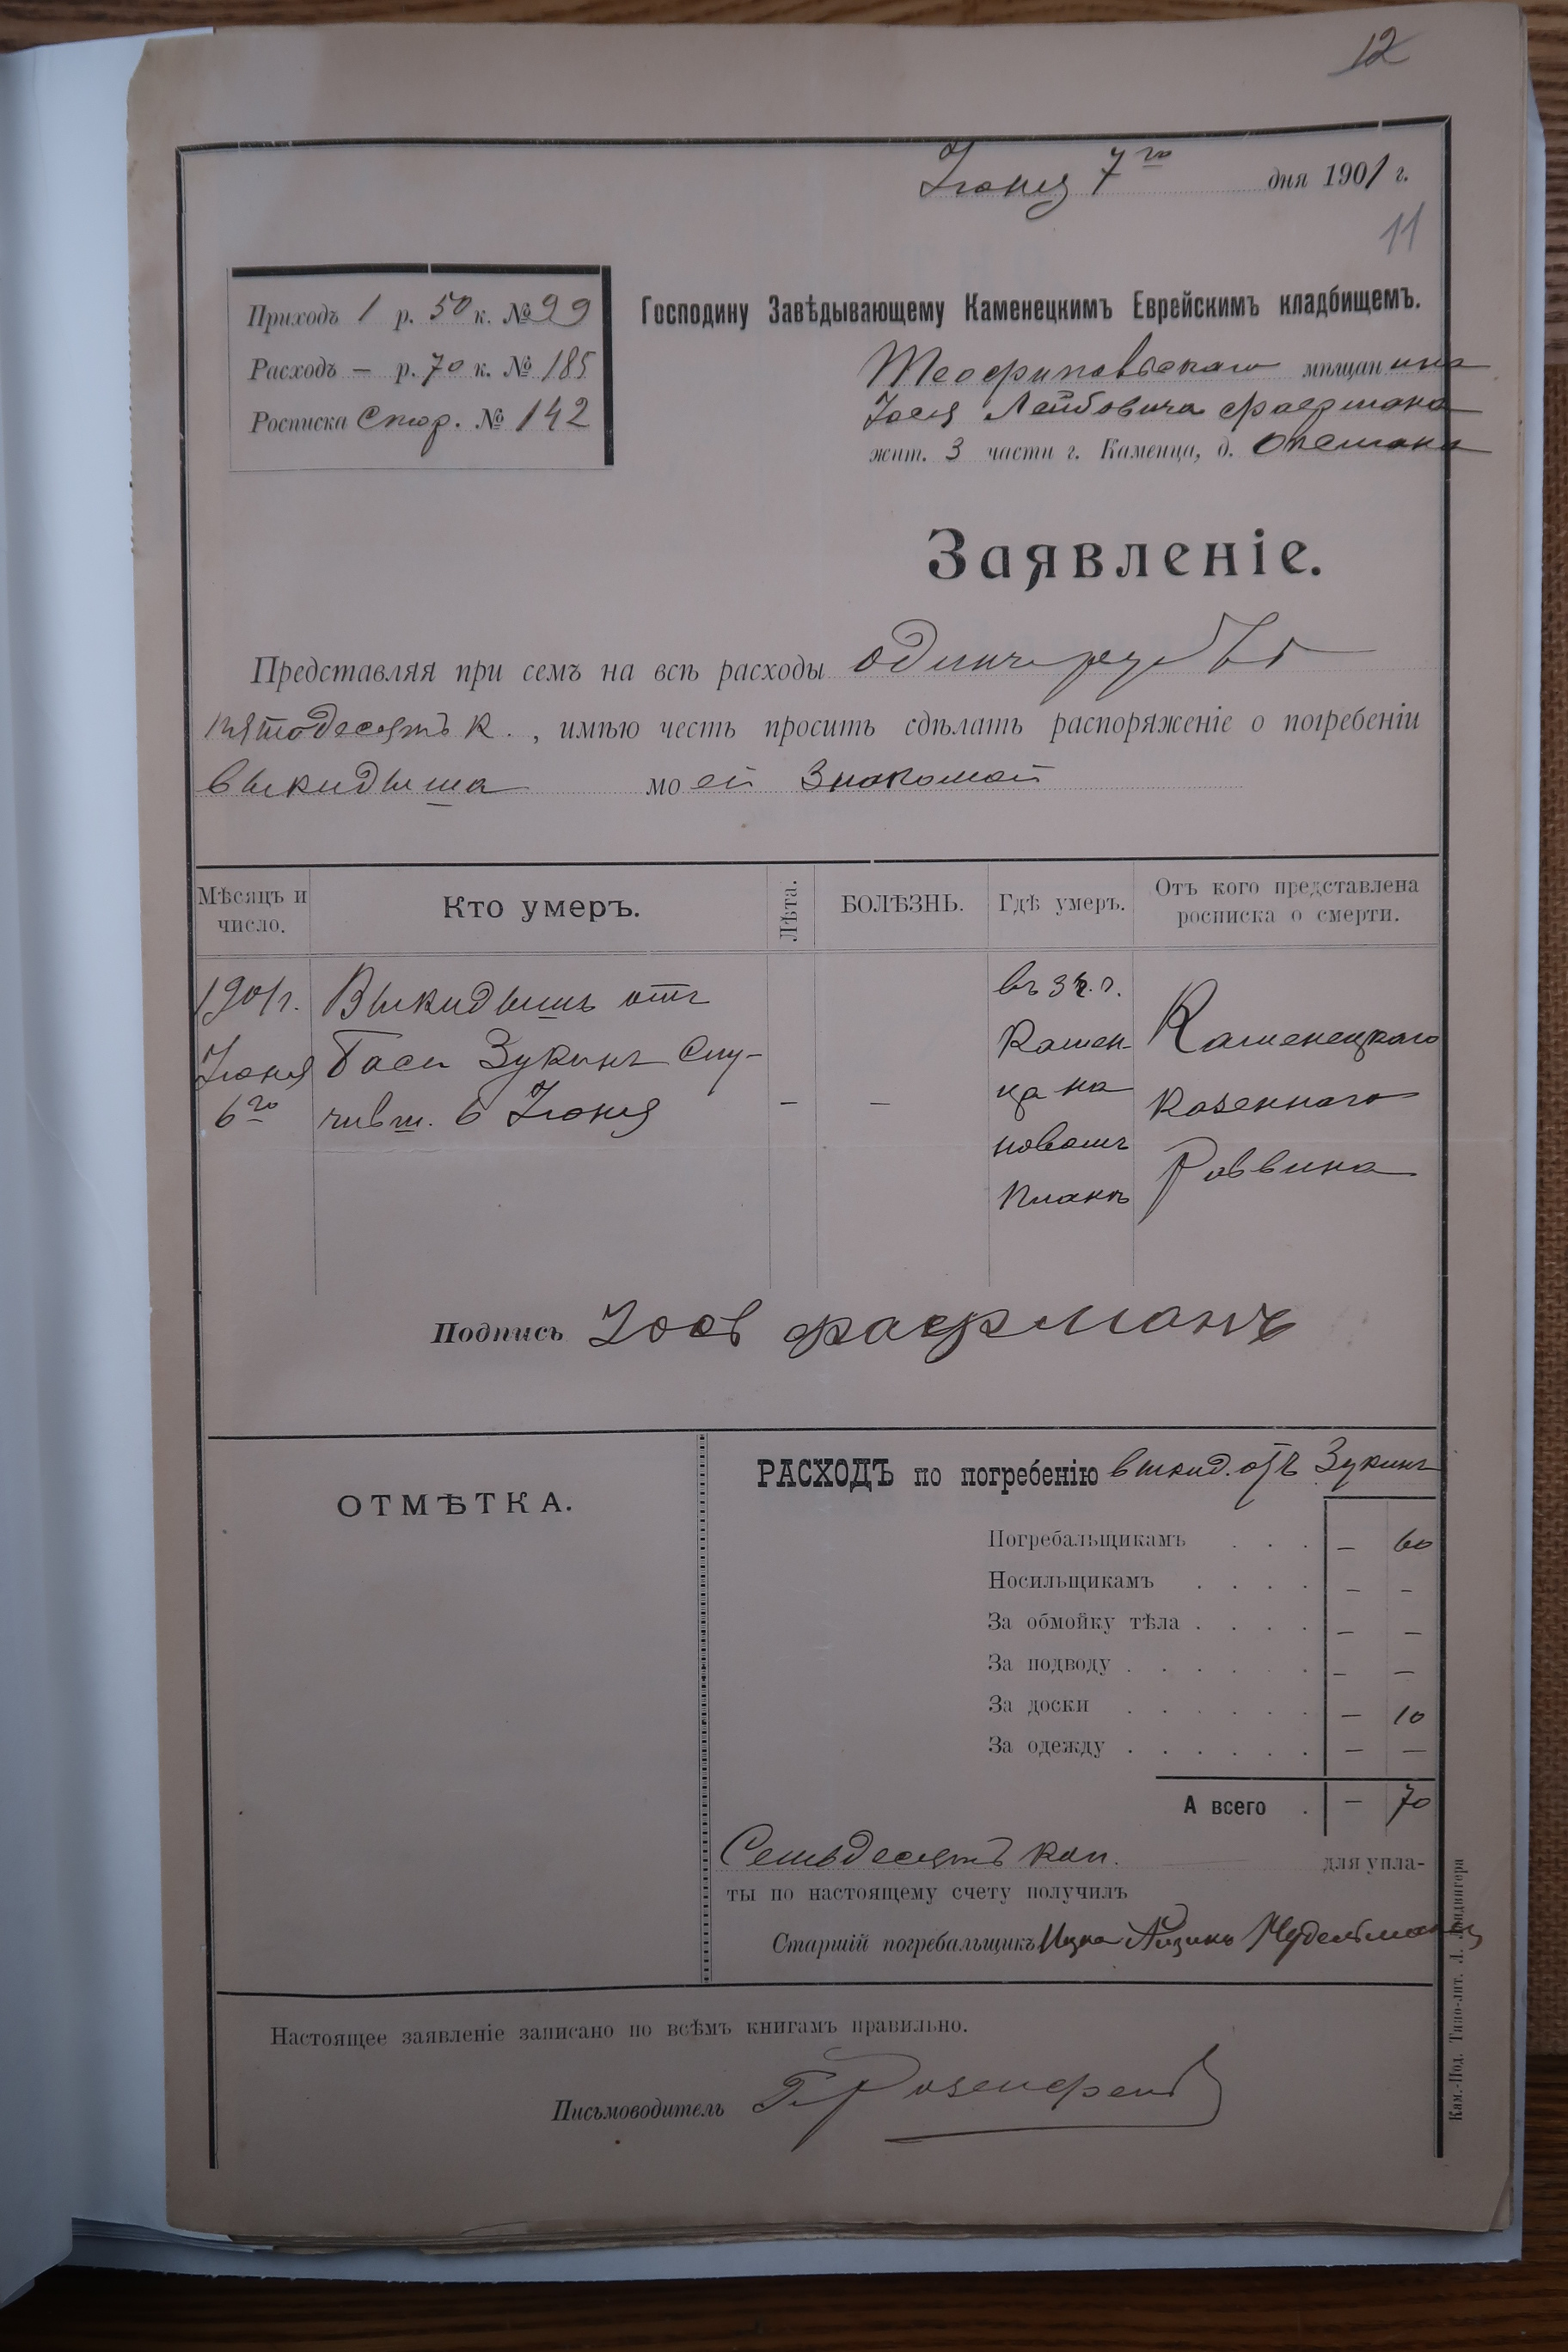 12
Іюня 7го дня 1901 г.
11
Приходъ 1 р. 50 к. № 99
Расходъ — р. 70 к. № 185
Росписка Стор. № 142
Господину Завѣдывающему Каменецкимъ Еврейскимъ кладбищемъ.
мѣщанина
Іося Лейбовича Фаермана
жит. 3 части г. Каменца, д.
Заявленіе.
Представляя при семъ на всѣ расходы одинъ рубль
пятьдесятъ к., имѣю честь просить сдѣлать распоряженіе о погребеніи
выкидыша моей знакомой
Мѣсяцъ и число. Кто умеръ. Лѣта. БОЛѢЗНЬ. Гдѣ умеръ. Отъ кого представлена росписка о смерти.
1901 г. Выкидышъ отъ въ 3 ч. г.
Іюня Баси Зукинъ слу- Камен- Каменецкаго
6го чивш. 6 Іюня — — ца на казеннаго
новомъ Раввина
планѣ
Подпись Іось Фаерманъ
ОТМѢТКА.
РАСХОДЪ по погребенію выкид. отъ Зукинъ
Погребальщикамъ . . . — 60
Носильщикамъ . . . . — —
За обмойку тѣла . . . . — —
За подводу . . . . . . — —
За доски . . . . . . — 10
За одежду . . . . . . — —
А всего . — 70
Семьдесятъ коп. для упла-
ты по настоящему счету получилъ
Старшій погребальщикъ Ицко Айзикъ
Настоящее заявленіе записано по всѣмъ книгамъ правильно.
Письмоводитель Розенфельд
Кам.-Под. Типо-лит. Л. Ландвигера